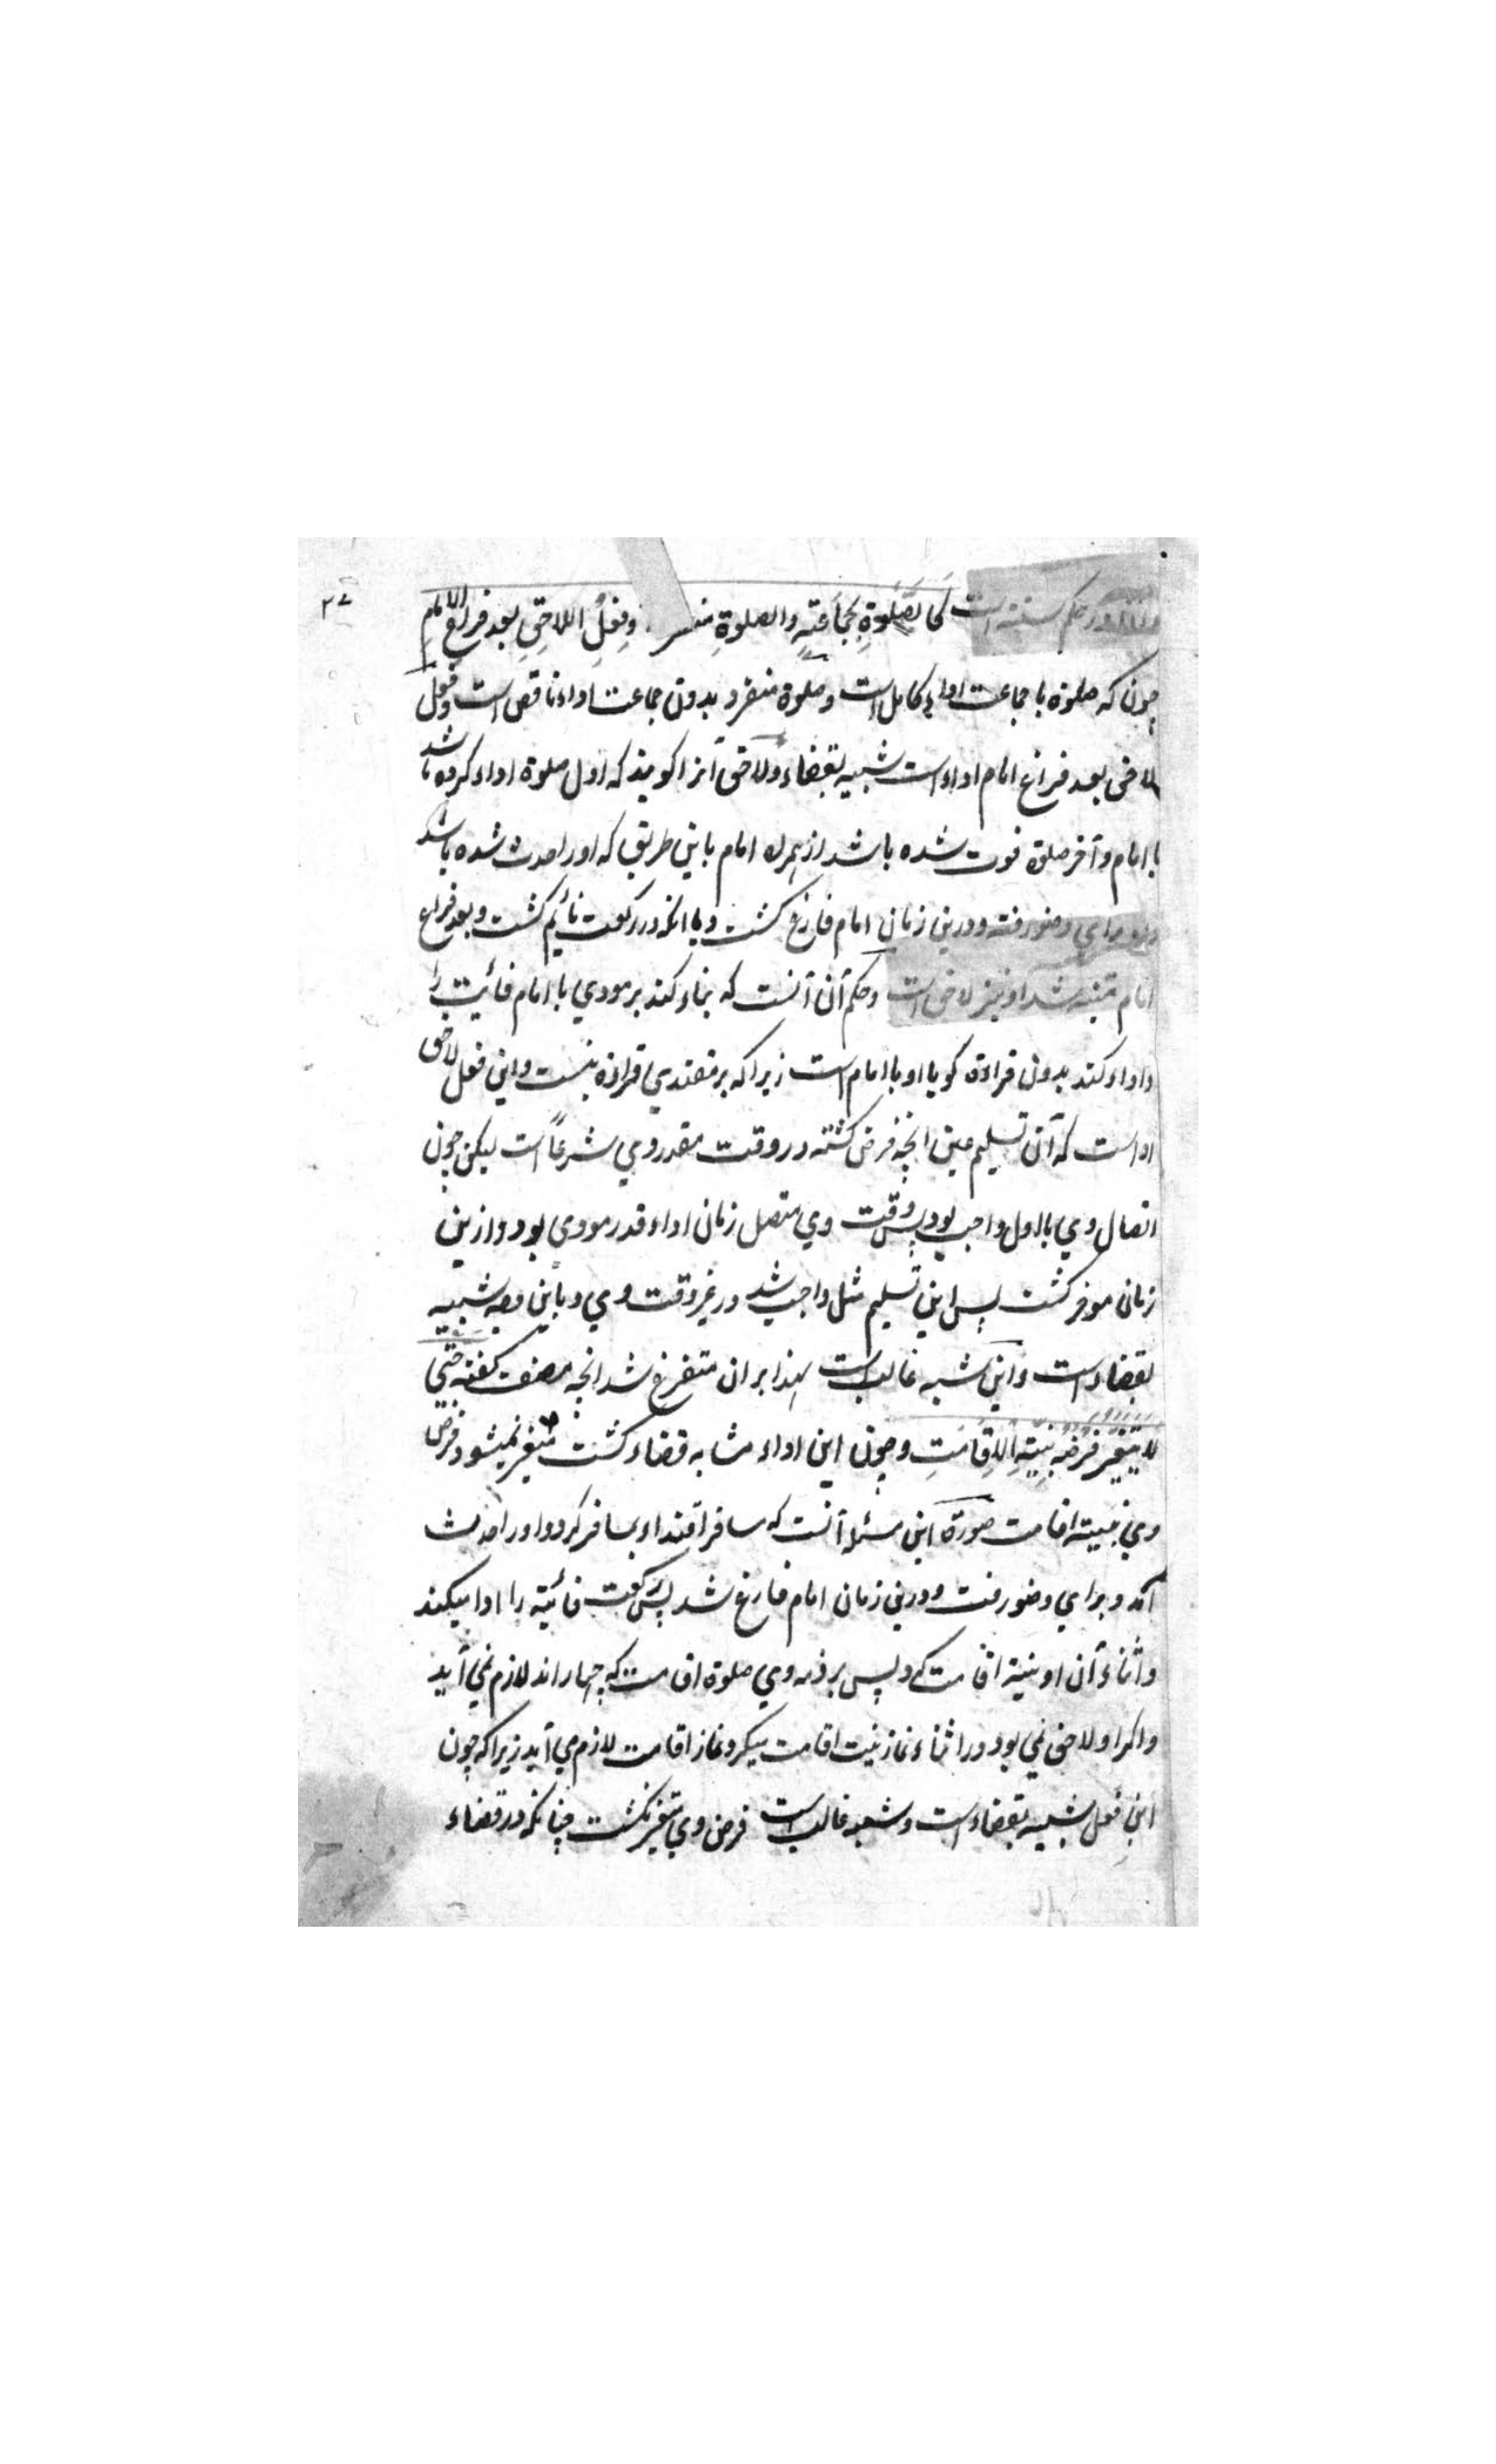 در حکم سنت است کَالصَّلٰوةِ بِجَمَاعَتِهِ والصلوةِ وفِعْلِ اللاحِقِ بعد فراغ الامامِ
چون که صلوة با جماعت اداء کامل است وصلوة منفرد بدون جماعت اداء ناقص است وفعل
لاحق بعد فراغ امام اداء است شبیه بقضاء ولاحق آنرا کویند که اول صلوة اداء کرده باشد
با امام وآخر صلوة فوت شده باشد از همراه امام باین طریق که اورا حدث شده باشد
برای وضو رفته ودرین زمان امام فارغ کشت ویا انکه در رکعت نائم کشت وبعد فراغ
امام متنبه شد او نیز لاحق است وحکم آن آنست که بناء کند بر مودي با امام فائیت را
واداء کند بدون قراءة کویا او با امام است زیرا که بر مقتدي قراءة نیست واین فعل لاحق
اداست که آن تسلیم عین انچه فرض کشته در وقت مقدر وي شرعاً است لیکن چون
اتصال وي با اول واجب بود پس وقت وي متصل زمان اداء قدر مودی بود وازین
زمان موخر کشت پس این تسلیم مثل واجب شد در غیر وقت وي وباین وجه شبیه
بقضاء است واین شبه غالب است لهذا بران متفرع شد انچه مصنف کفته حتی
لا یتغیر فرضه بنیّةِ الاِقامَتِ وچون این اداء مشابه قضاء کشت متغیر نمیشود فرض
وي بنیته اقامت صورة این مسئله آنست که مسافر اقتداء بمسافر کرد واورا حدث
آمد وبراي وضو رفت ودرین زمان امام فارغ شد پس رکعت فائیته را ادا میکند
واثناء آن او نیتة اقامت کرد پس بر ذمه وي صلوة اقامت که چهار اند لازم نمي آید
واکر او لاحق نمي بود ودر اثناء نماز نیت اقامت میکرد نماز اقامت لازم مي آید زیرا که چون
این فعل شبیه بقضاء است وشبه غالب است فرض وي متغیر نکشت چنانکه در قضاء